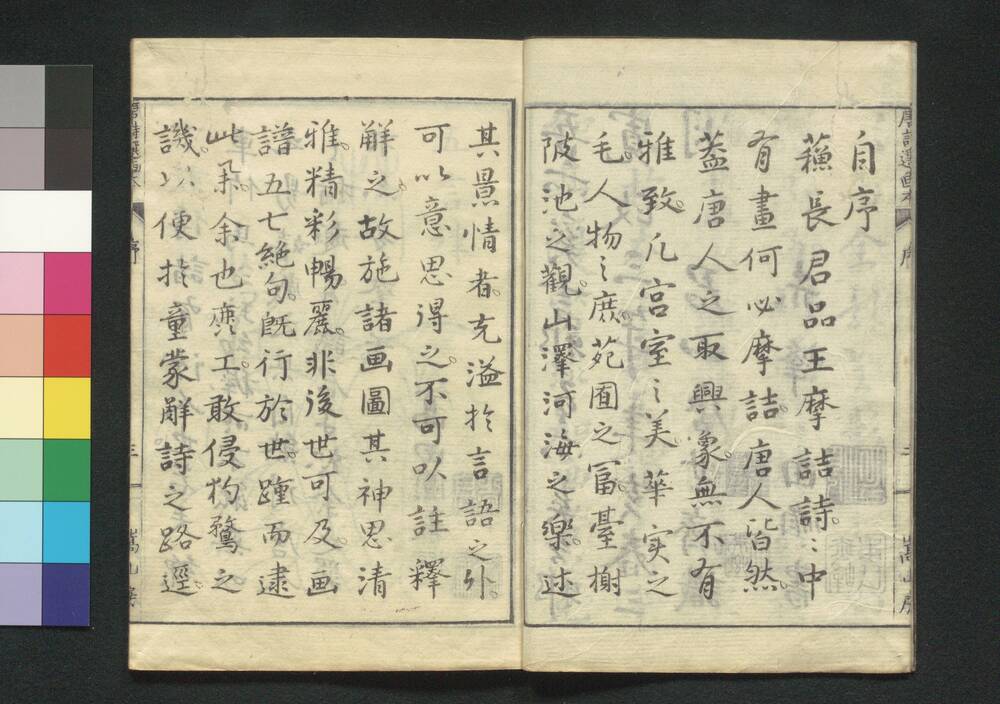 自序
蘓長君品王摩詰詩。〻中
有畫何必摩詰。唐人皆然。
葢唐人之取興象。無不有
雅致。凡宮室〻美。華実之
毛。人物〻庶。苑囿之冨。臺榭
陂池之觀。山澤河海之樂。述
其景情者。充溢扵言語之外。
可以意思得之。不可以註釋
觧之。故施諸画圖其神思清
雅。精彩暢麗。非後世可及。画
譜五七絶句。既行於世。踵而逮
此。余也
工。敢侵於鶩之
譏。以便扵童蒙觧詩之路逕。
唐詩選画本
序
三
嵩山房